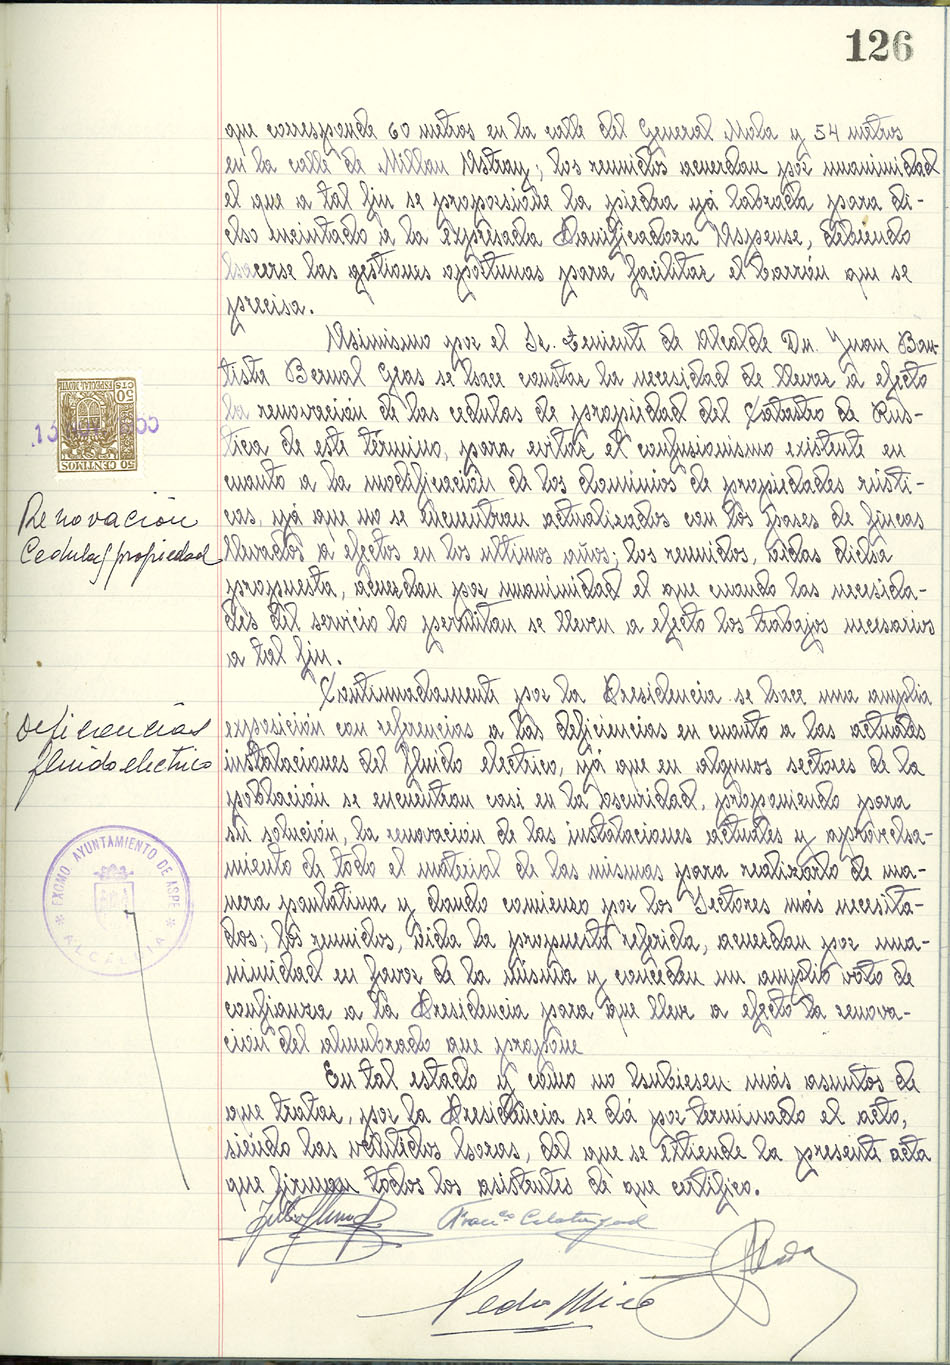 126
que corresponde 60 metros en la calle del General Mola y 54 metros
en la calle de Millan Astray; los reunidos acuerdan por unanimidad
el que a tal fin se proporsione la piedra yá labrada para di-
cho encintado a la expresada Panificadora Aspense, debiendo
hacerse las gestiones oportunas para facilitar el barrón que se
precisa.
Asimismo por el Sr. Teniente de Alcalde Dn. Juan Bau-
tista Bernal Geas se hace constar la necesidad de llevar a efecto
la renovación de las cedulas de propiedad del Catastro de Rus-
tica de este término, para evitar el confusionismo existente en
cuanto a la modificación de los dominios de propiedades rústi-
cas, yá que no se encuentran actualizados con los pases de fincas
llevados a efectos en los ultimos años; los reunidos, oidas dicha
propuesta, acuerdan por unanimidad el que cuando las necesida-
des del servicio lo permitan se lleven a efecto los trabajos necesarios
a tal fin.
Renovación
Cedulas propiedad
50 CENTIMOS
ESPECIAL MOVIL
50 CTS
Continuadamente por la Presidencia se hace una amplia
exposición con referencias a las deficiencias en cuanto a las actuales
instalaciones del fluido electrico, yá que en algunos sectores de la
población se encuentran casi en la oscuridad, proponiendo para
su solución, la renovación de las instalaciones actuales y aprovecha-
miento de todo el material de las mismas para realizarlo de ma-
nera paulatina y dando comienzo por los Sectores más necesita-
dos; los reunidos, oida la propuesta referida, acuerdan por una-
nimidad en favor de la misma y conceden un amplio voto de
confianza a la Presidencia para que lleve a efecto la renova-
ción del alumbrado que propone
Deficiencias
fluido electrico
EXCMO. AYUNTAMIENTO DE ASPE
* ALCALDIA *
En tal estado y como no hubiesen más asuntos de
que tratar, por la Presidencia se dá por terminado el acto,
siendo las veintidos horas, del que se extiende la presente acta
que firman todos los asistentes de que certifico.
Pedro Mico